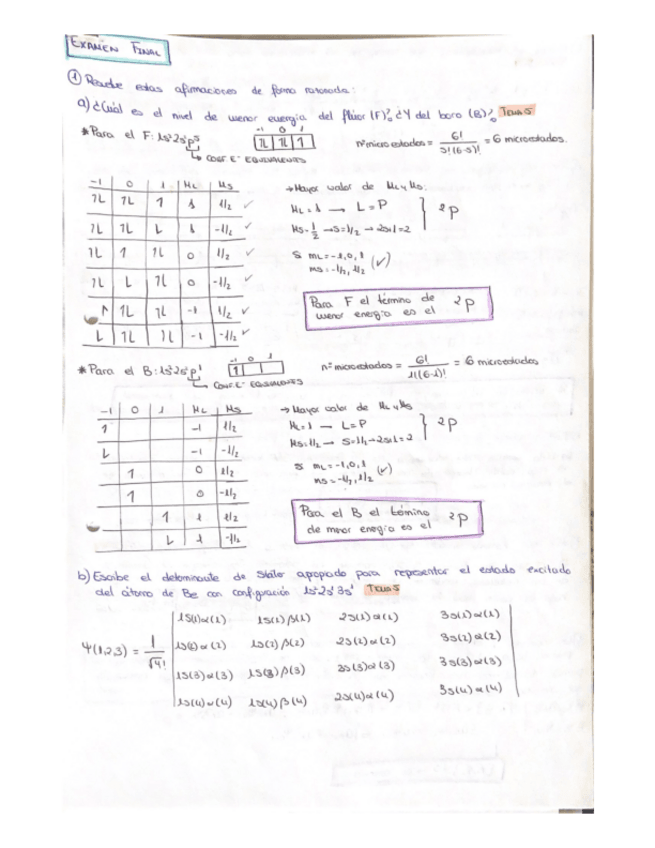 EXAMEN FINAL
① Resuelve estas afirmaciones de forma razonada:
a) ¿Cuál es el nivel de menor energía del flúor (F)? ¿Y del boro (B)? TEMA 5
* Para el F: 1s²2s²p⁵
-1 0 1
1L 1L 1
↳ CONF. E⁻ EQUIVALENTES
nº microestados = 6! / 5!(6-5)! = 6 microestados.
-1 0 1 ML MS
1L 1L 1 1 1/2 ✓
1L 1L L 1 -1/2 ✓
1L 1 1L 0 1/2 ✓
1L L 1L 0 -1/2 ✓
1 1L 1L -1 1/2 ✓
L 1L 1L -1 -1/2 ✓
→ Mayor valor de ML y MS:
ML = 1 → L = P
MS = 1/2 → S = 1/2 → 2S+1 = 2
} ²P
mL = -1, 0, 1
ms = -1/2, 1/2 (✓)
Para F el término de
menor energía es el ²P
* Para el B: 1s²2s²p¹
-1 0 1
1
↳ CONF. E⁻ EQUIVALENTES
nº microestados = 6! / 1!(6-1)! = 6 microestados
-1 0 1 ML MS
1 -1 1/2
L -1 -1/2
1 0 1/2
1 0 -1/2
1 1 1/2
L 1 -1/2
→ Mayor valor de ML y MS
ML = 1 → L = P
MS = 1/2 → S = 1/2 → 2S+1 = 2
} ²P
mL = -1, 0, 1
ms = -1/2, 1/2 (✓)
Para el B el término
de menor energía es el ²P
b) Escribe el determinante de Slater apropiado para representar el estado excitado
del átomo de Be con configuración 1s²2s¹3s¹ TEMA 5
Ψ(1,2,3) = 1/√4!
1s(1)α(1) 1s(1)β(1) 2s(1)α(1) 3s(1)α(1)
1s(2)α(2) 1s(2)β(2) 2s(2)α(2) 3s(2)α(2)
1s(3)α(3) 1s(3)β(3) 3s(3)α(3) 3s(3)α(3)
1s(4)α(4) 1s(4)β(4) 2s(4)α(4) 3s(4)α(4)